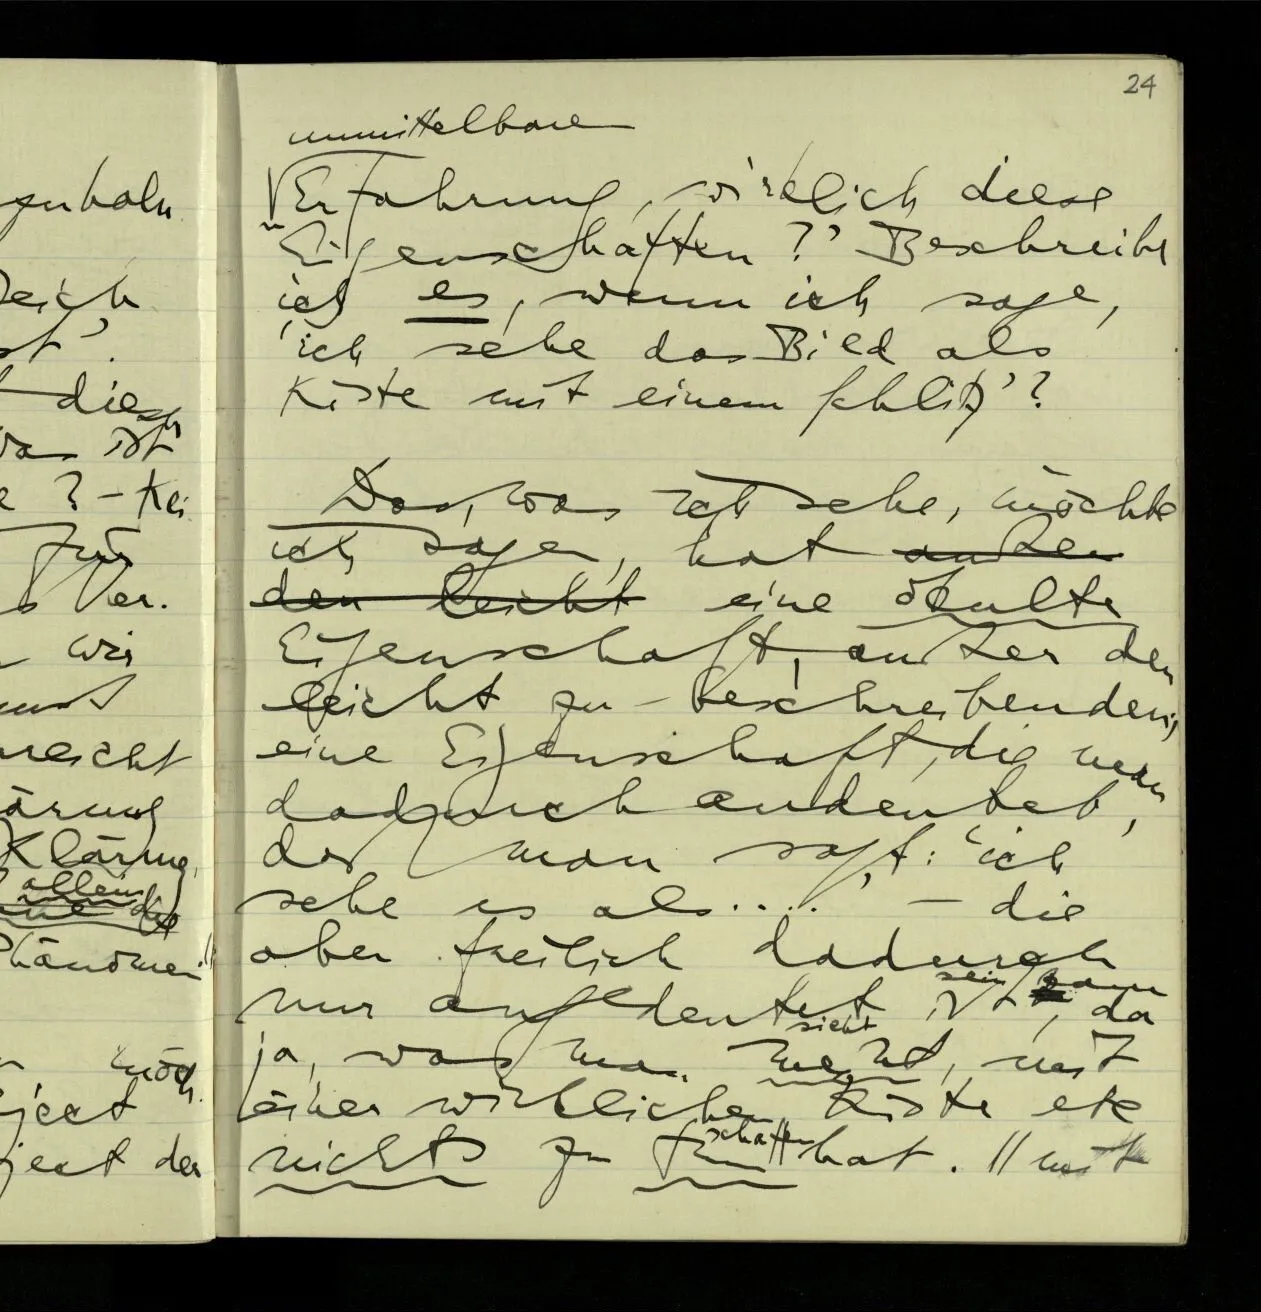 24
unmittelbare
Erfahrung, wirklich diese
Eigenschaften?' Beschreibt
ich es, wenn ich sage,
'ich sehe das Bild als
Kiste mit einem Schlitz'?
Das, was ich sehe, möchte
ich sagen, hat außer
den leicht eine okulte
Eigenschaft, außer den
leicht zu beschreibenden,
eine Eigenschaft, die man
dadurch andeutet,
daß man sagt: 'ich
sehe es als....' – die
aber freilich dadurch
sein kann
nur angedeutet ist, da
sieht
ja, was man meint, mit
einer wirklichen Kiste etc
schaffen
nichts zu tun hat. || mit
diesen
ist
? – Kei
für
er.
wir
Klärung
allein
Phänomen